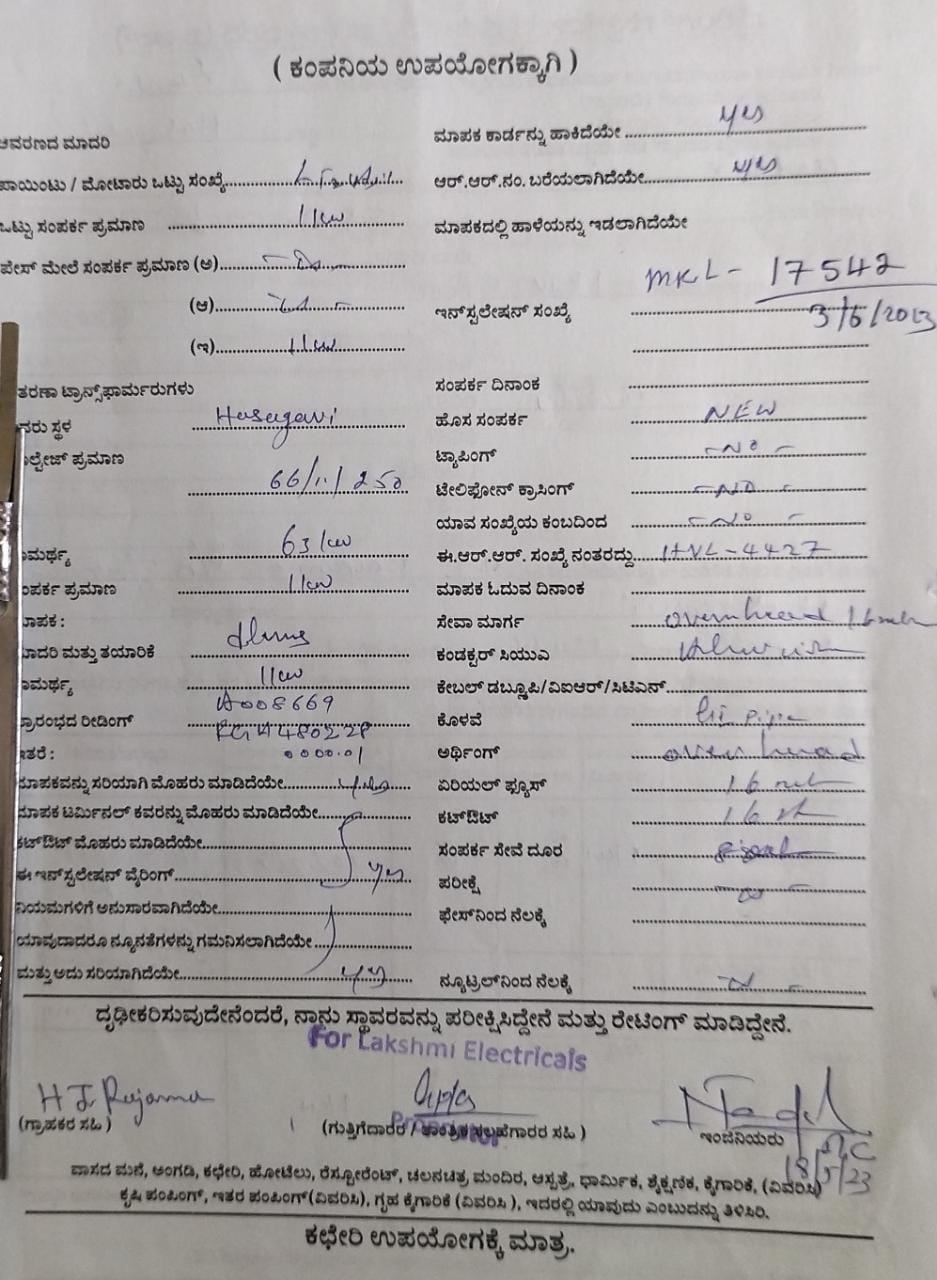 ( ಕಂಪನಿಯ ಉಪಯೋಗಕ್ಕಾಗಿ )
ಆವರಣದ ಮಾದರಿ
ಪಾಯಿಂಟು / ಮೋಟಾರು ಒಟ್ಟು ಸಂಖ್ಯೆ
ಒಟ್ಟು ಸಂಪರ್ಕ ಪ್ರಮಾಣ 1 kw
ಪೇಸ್ ಮೇಲೆ ಸಂಪರ್ಕ ಪ್ರಮಾಣ (ಅ)
(ಆ)
(ಇ) 1 kw
ತರಣಾ ಟ್ರಾನ್ಸ್‌ಫಾರ್ಮರುಗಳು
ನರು ಸ್ಥಳ Hasagavi
ಲ್ಟೇಜ್ ಪ್ರಮಾಣ 66/11/250
ಮರ್ಥ್ಯ 63 kw
ಂಪರ್ಕ ಪ್ರಮಾಣ 1 kw
ಮಾಪಕ :
ಮಾದರಿ ಮತ್ತು ತಯಾರಿಕೆ
ಮರ್ಥ್ಯ 1 kw
A008669
ಪ್ರಾರಂಭದ ರೀಡಿಂಗ್
ಇತರೆ : 0000.01
ಮಾಪಕವನ್ನು ಸರಿಯಾಗಿ ಮೊಹರು ಮಾಡಿದೆಯೇ yes
ಮಾಪಕ ಟರ್ಮಿನಲ್ ಕವರನ್ನು ಮೊಹರು ಮಾಡಿದೆಯೇ
ಕಟ್‌ಔಟ್ ಮೊಹರು ಮಾಡಿದೆಯೇ
ಈ ಇನ್‌ಸ್ಟಲೇಷನ್ ವೈರಿಂಗ್ yes
ನಿಯಮಗಳಿಗೆ ಅನುಸಾರವಾಗಿದೆಯೇ
ಯಾವುದಾದರೂ ನ್ಯೂನತೆಗಳನ್ನು ಗಮನಿಸಲಾಗಿದೆಯೇ
ಮತ್ತು ಅದು ಸರಿಯಾಗಿದೆಯೇ yes
ಮಾಪಕ ಕಾರ್ಡನ್ನು ಹಾಕಿದೆಯೇ yes
ಆರ್.ಆರ್.ನಂ. ಬರೆಯಲಾಗಿದೆಯೇ yes
ಮಾಪಕದಲ್ಲಿ ಹಾಳೆಯನ್ನು ಇಡಲಾಗಿದೆಯೇ
MKL - 17542
ಇನ್‌ಸ್ಟಲೇಷನ್ ಸಂಖ್ಯೆ
ಸಂಪರ್ಕ ದಿನಾಂಕ
ಹೊಸ ಸಂಪರ್ಕ NEW
ಟ್ಯಾಪಿಂಗ್ - NO -
ಟೆಲಿಫೋನ್ ಕ್ರಾಸಿಂಗ್ - NO -
ಯಾವ ಸಂಖ್ಯೆಯ ಕಂಬದಿಂದ - NO -
ಈ.ಆರ್.ಆರ್. ಸಂಖ್ಯೆ ನಂತರದ್ದು HVL-4427
ಮಾಪಕ ಓದುವ ದಿನಾಂಕ
ಸೇವಾ ಮಾರ್ಗ overhead
ಕಂಡಕ್ಟರ್ ಸಿಯುಎ
ಕೇಬಲ್ ಡಬ್ಲ್ಯೂಪಿ/ವಿಐಆರ್/ಸಿಟಿಎಸ್
ಕೊಳವೆ GI pipe
ಅರ್ಥಿಂಗ್ over head
ಏರಿಯಲ್ ಫ್ಯೂಸ್ 16
ಕಟ್‌ಔಟ್ 16
ಸಂಪರ್ಕ ಸೇವೆ ದೂರ
ಪರೀಕ್ಷೆ
ಫೇಸ್‌ನಿಂದ ನೆಲಕ್ಕೆ
ನ್ಯೂಟ್ರಲ್‌ನಿಂದ ನೆಲಕ್ಕೆ
ದೃಢೀಕರಿಸುವುದೇನೆಂದರೆ, ನಾನು ಸ್ಥಾವರವನ್ನು ಪರೀಕ್ಷಿಸಿದ್ದೇನೆ ಮತ್ತು ರೇಟಿಂಗ್ ಮಾಡಿದ್ದೇನೆ.
For Lakshmi Electricals
(ಗ್ರಾಹಕರ ಸಹಿ )
(ಗುತ್ತಿಗೆದಾರರ / ತಾಂತ್ರಿಕ ಸಲಹೆಗಾರರ ಸಹಿ )
ಇಂಜಿನಿಯರು
18/5/23
ವಾಸದ ಮನೆ, ಅಂಗಡಿ, ಕಛೇರಿ, ಹೋಟೆಲು, ರೆಸ್ಟೋರೆಂಟ್, ಚಲನಚಿತ್ರ ಮಂದಿರ, ಆಸ್ಪತ್ರೆ, ಧಾರ್ಮಿಕ, ಶೈಕ್ಷಣಿಕ, ಕೈಗಾರಿಕೆ, (ವಿವರಿಸಿ)
ಕೃಷಿ ಪಂಪಿಂಗ್, ಇತರ ಪಂಪಿಂಗ್(ವಿವರಿಸಿ), ಗೃಹ ಕೈಗಾರಿಕೆ (ವಿವರಿಸಿ ), ಇದರಲ್ಲಿ ಯಾವುದು ಎಂಬುದನ್ನು ತಿಳಿಸಿರಿ.
ಕಛೇರಿ ಉಪಯೋಗಕ್ಕೆ ಮಾತ್ರ.